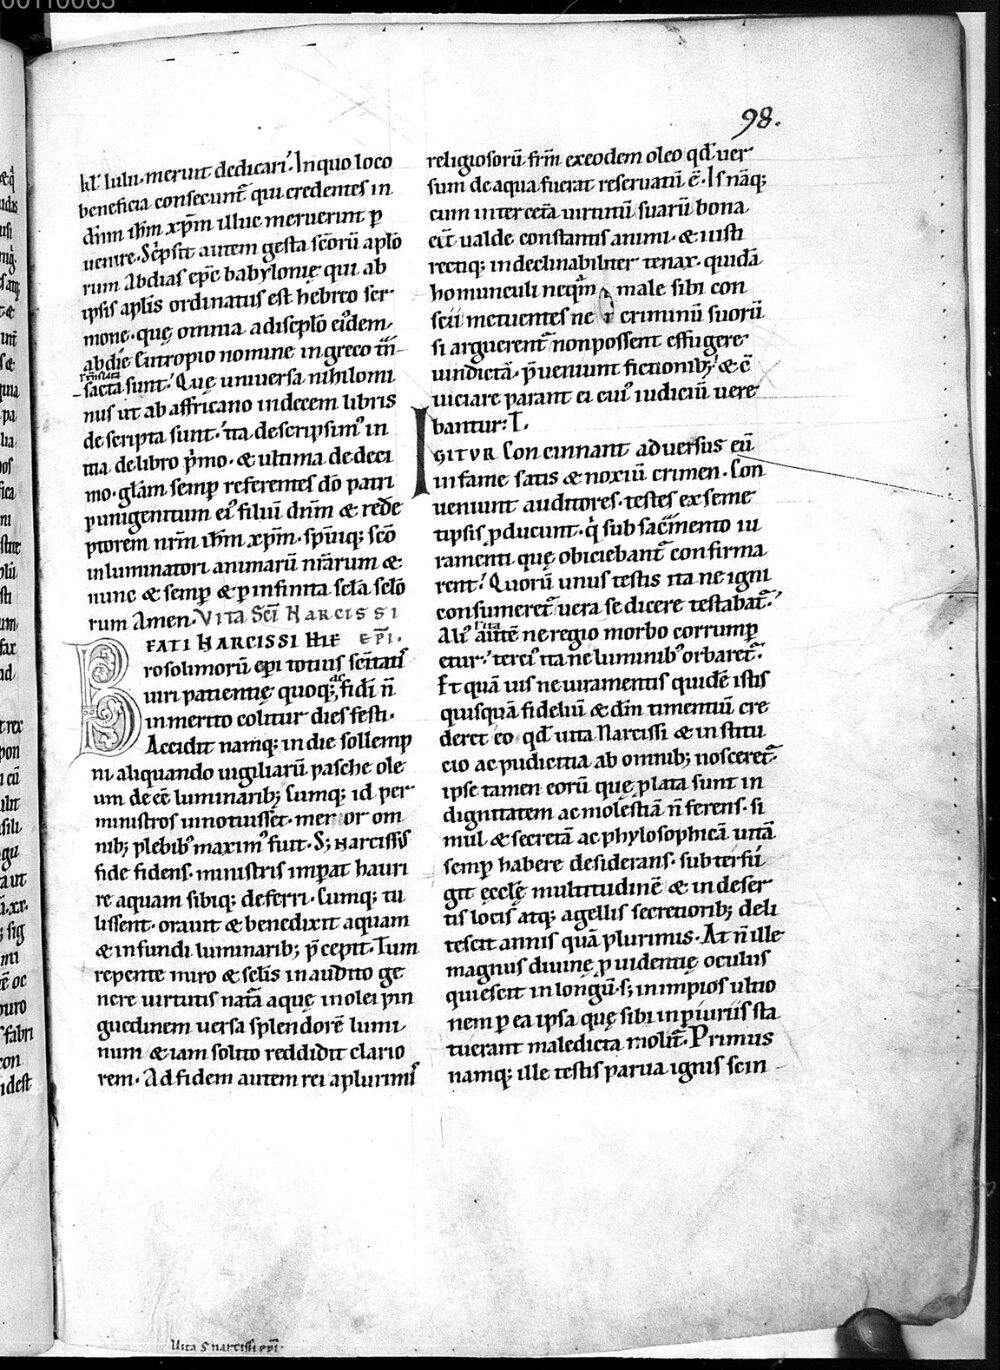 98.
kl̅. iulii. meruit dedicari. In quo loco
beneficia consecunt̅ qui credentes in
dn̅m ih̅m xp̅m illuc meruerint ꝑ
uenire. Sc̅psit autem gesta sc̅oru̅ aplo̅
rum Abdias ep̅c babylonię qui ab
ipsis aplis̅ ordinatus est hebreo ser
mone. quę omnia a discplo̅ ei'dem.
abdię Eutropio nomine in greco
facta sunt. Quę uniuersa nihilomi
nus ut ab affricano in decem libris
descripta sunt. ita descripsim' in
tia de libro p̍mo. & ultima de deci
mo. glam̅ semꝑ referentes do̅ patri
ꝑ unigenitum ei' filiu̅ dn̅m & rede̅
ptorem nr̅m ih̅m xp̅m. spu̅iq; sc̅o
inluminatori animaru̅ nr̅arum &
nunc & semꝑ & ꝑ infinita scla̅ sclo̅
rum Amen. VITA SC̅I NARCISSI
BEATI NARCISSI HIE EP̅I.
rosolimoru̅ ep̅i totius sc̅itatis
uiri patientię quoq; ac fidi n̅
inmerito colitur dies festi.
Accidit namq; in die sollemp
ni aliquando uigiliaru̅ pasche ole
um de ec̅e luminarib; Cumq; id per
ministros innotuisset. meror om
nib; plebib' maxim' fuit. S; Narcissus
fide fidens. ministris imꝑat hauri
re aquam sibiq; deferri. Cumq; tu
lissent. orauit & benedixit aquam
& infundi luminarib; p̅cepit. Tum
repente miro & sclis̅ inaudito ge
nere uirtutis nata̅ aquę in olei pin
guedinem uersa splendore̅ lumi
num & iam solito reddidit clario
rem. Ad fidem autem rei a plurimis
religiosoru̅ fr̅m ex eodem oleo qd̅ uer
sum de aqua fuerat reseruatu̅ e̅. Is na̅q;
cum inter ceta̅ uirtutu̅ suaru̅ bona
ec̅t ualde constantis animi. & iusti
rectiq; indeclinabiliter tenax. quida̅
homunculi neqm̅ male sibi con
scii metuentes ne criminu̅ suoru̅
si arguerent̅ non possent effugere
uindicta̅. p̅ueniunt fictionib; & e̅
uiciare parant ei cui' iudiciu̅ uere
bantur: I.
IGITUR Concinnant aduersus eu̅
infame satis & noxiu̅ crimen. Con
ueniunt auditores. testes ex seme
tipsis ꝓducunt. q̍ sub sacm̅ento iu
ramenti quę obiciebant̅ confirma
rent. Quoru̅ unus testis ita ne igni
consumeret̅ uera se dicere testabat̅.
Ali' aute̅ ita ne regio morbo corrumꝑ
etur. terci' ita ne luminib' orbaret̅.
Et qua̅ uis ne iuramentis quide̅ istis
quisqua̅ fideliu̅ & dm̅ timentiu̅ cre
deret eo qd̅ uita Narcissi & institu
cio ac pudicitia ab omnib; nosceret̅.
ipse tamen eoru̅ quę ꝓlata sunt in
dignitatem ac molestia̅ n̅ ferens. si
mul & secreta̅ ac phylosophica̅ uita̅
semꝑ habere desiderans. subterfu̅
git ęcclę multitudine̅ & in deser
tis locis atq; agellis secretiorib; deli
tescit annis qua̅ plurimis. At n̅ ille
magnus diuinę ꝓuidentię oculus
quiescit in longu̅. s; in impios ultio
nem ꝑ ea ipsa quę sibi in ꝑiuriis sta
tuerant maledicta molit̅. Primus
namq; ille testis parua ignis scin
Uita S narcissi epi̅.